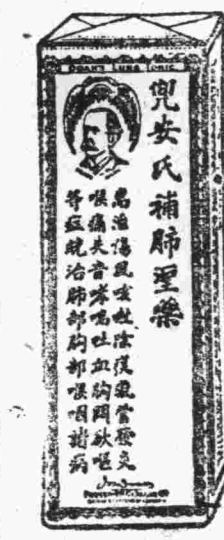 DOAN'S LUNG TONIC
兜安氏補肺聖藥
治傷風咳氣管發炎
喉痛失音哮喘吐血胸悶欬嘔
等症統治肺部胸部喉咽諸病